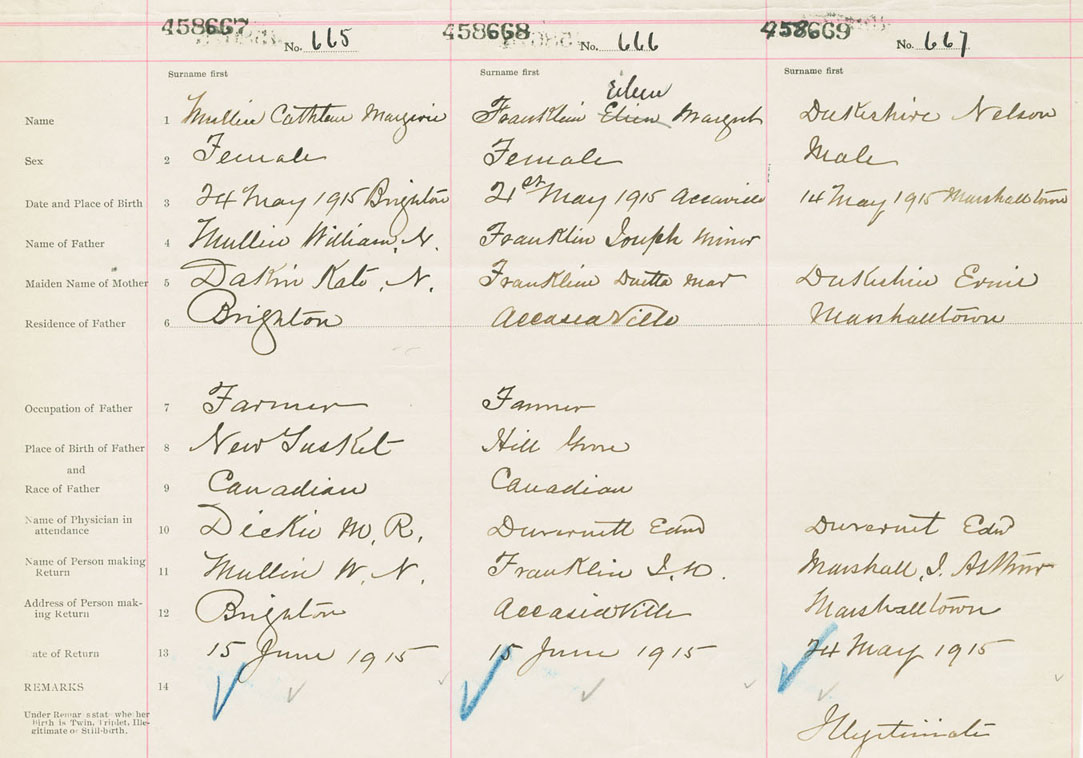 458667 No. 665 458668 No. 666 458669 No. 667
Surname first Surname first Surname first
Eileen
Name 1 Mullin Cathleen Margirie Franklin Elien Margret Dukeshire Nelson
Sex 2 Female Female Male
Date and Place of Birth 3 24 May 1915 Brighton 21st May 1915 Accaville 14 May 1915 Marshalltown
Name of Father 4 Mullin William, N. Franklin Joseph Minor
Maiden Name of Mother 5 Dakin Kate, N. Franklin Duetta May Dukeshire Ernie
Residence of Father 6 Brighton AccasiaVille Marshalltown
Occupation of Father 7 Farmer Farmer
Place of Birth of Father 8 New Tusket Hill Grove
and
Race of Father 9 Canadian Canadian
Name of Physician in
attendance 10 Dickie M. R. Duvernett Edwd Duvernet Edwd
Name of Person making
Return 11 Mullin W. N. Franklin J. M. Marshall, J. Arthur
Address of Person mak-
ing Return 12 Brighton AccasiaVille Marshalltown
ate of Return 13 15 June 1915 15 June 1915 24 May 1915
REMARKS 14
Under Remarks state whether
Birth is Twin, Triplet, Ille-
gitimate or Still-birth. Illegitimate